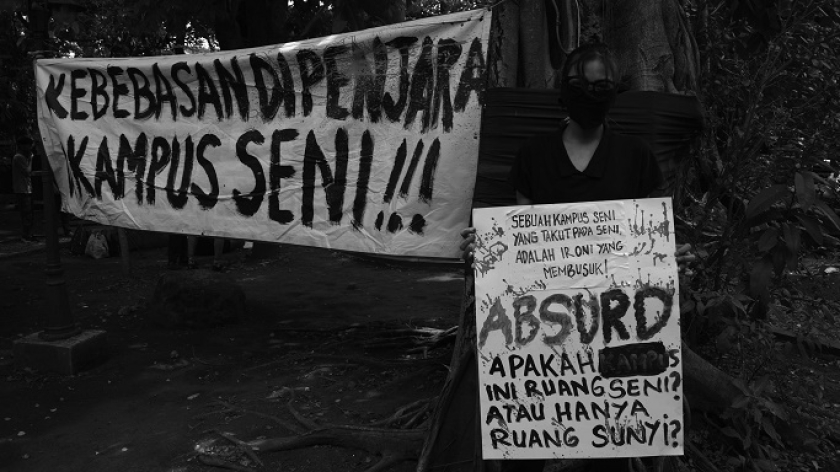 KEBEBASAN DIPENJARA
KAMPUS SENI!!!
SEBUAH KAMPUS SENI
YANG TAKUT PADA SENI,
ADALAH IRONI YANG
MEMBUSUK!
ABSURD
APAKAH KAMPUS
INI RUANG SENI?
ATAU HANYA
RUANG SUNYI?